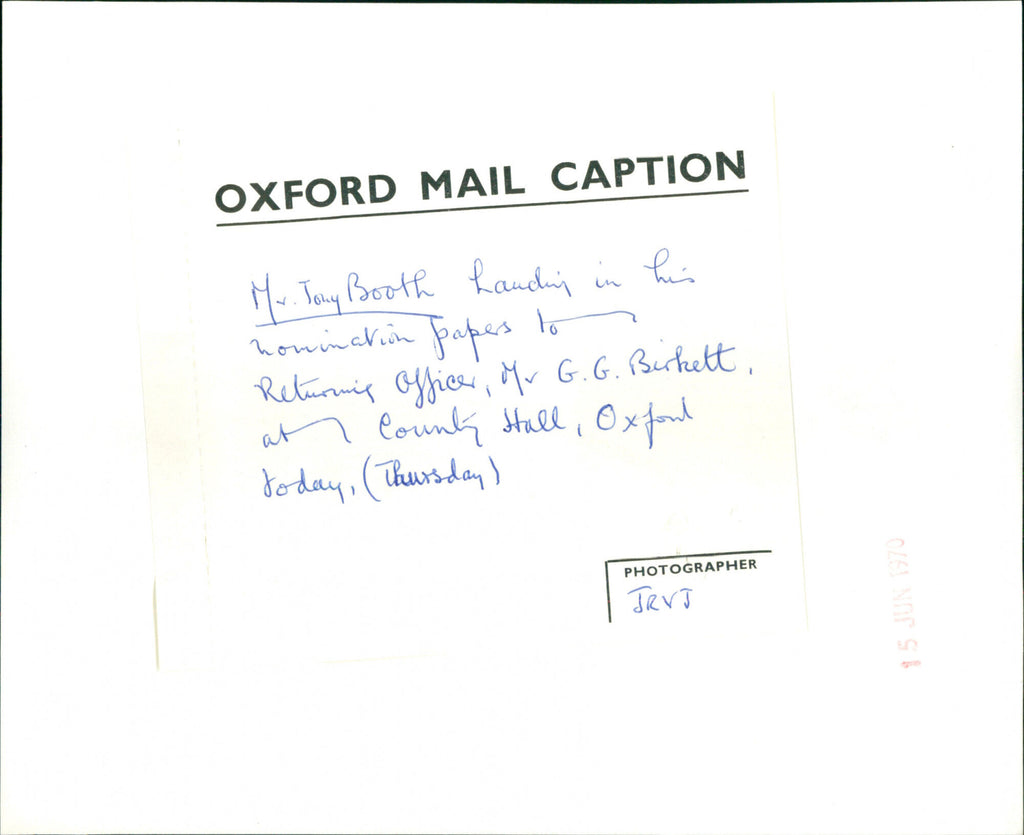 OXFORD MAIL CAPTION
Mr. Tony Booth handing in his
nomination papers to
Returning Officer, Mr G. G. Birkett,
at County Hall, Oxford
today, (Thursday)
PHOTOGRAPHER
JRVJ
15 JUN 1970